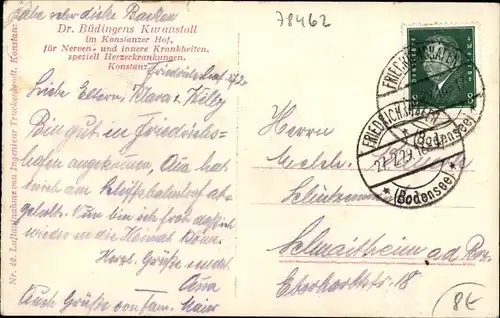 Habe sehr dicke Backen
Dr. Büdingens Kuranstalt
im Konstanzer Hof,
für Nerven- und innere Krankheiten,
speziell Herzerkrankungen,
Konstanz
78462
Friedrichshafen
Liebe Eltern, Klara & Willy
Bin gut in Friedrichs-
hafen angekommen, Ana hat
mich am Schiffsbahnhof ab-
geholt. Nun bin ich froh daß ich
wieder in die Heimat
Herzl. Grüße sendet
Ana
Auch Grüße von Fam. Maier
Nr. 40. Luftaufnahme von Ingenieur Truckenbrodt, Konstanz
DEUTSCHES REICH
8
FRIEDRICHSHAFEN
(Bodensee)
FRIEDRICHSHAFEN
27.2.29
* (Bodensee) *
Herrn
Schmaitheim ad
Eberhardtstr. 18
8€